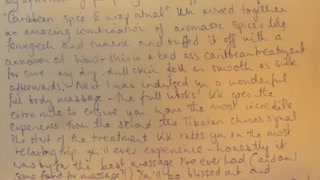 my afternoon
Caribbean Spice & wrap ritual" KK mixed together
an amazing combination of aromatic spices like
fenugeek and tumeric and buffed it off with a
cinnamon oil - this is a bad ass caribbean treatment
for sure - my dry, dull skin felt as smooth as silk
afterwards. Next I was indulged in a wonderful
full body massage - the full works! KK goes the
extra mile to ensure you have the most incredible
experience from the second the Tibetan chimes signal
the start of the treatment KK takes you on the most
relaxing trip you'll ever experience - honestly it
was by far the best massage I've ever had (and am
some found for massage!) Ya'll be blissed out and